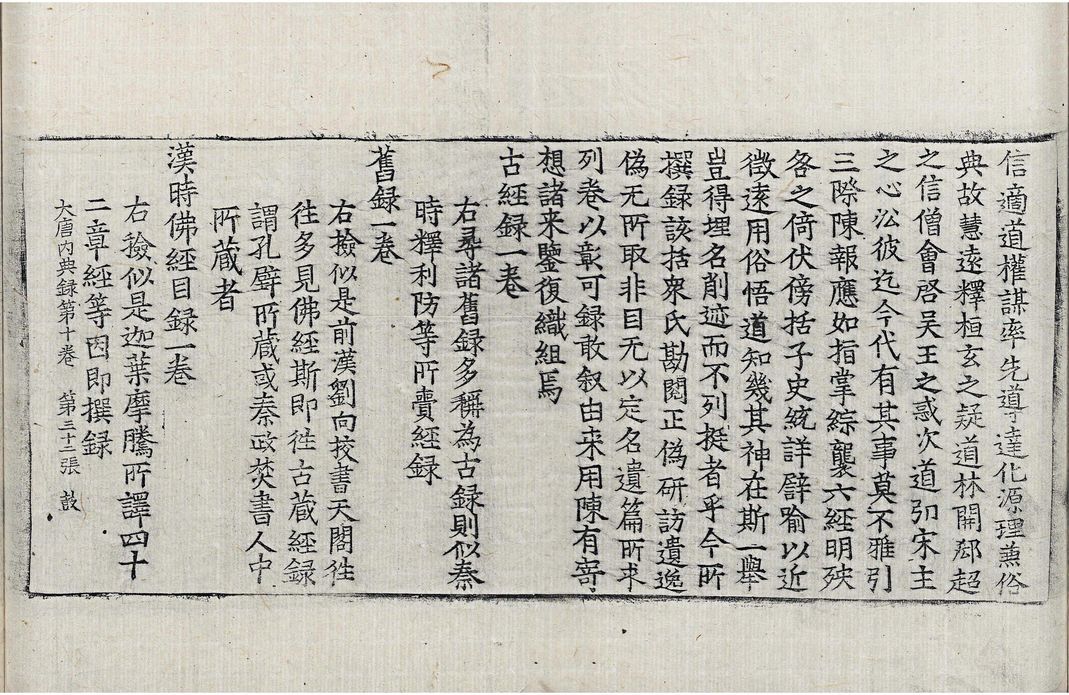 信適道權謀率先導達化源理兼俗
典故慧遠釋桓玄之疑道林開郄超
之信僧會啓吴王之惑次道卬宋主
之心㳂彼迄今代有其事莫不雅引
三際陳報應如指掌綜襲六經明殃
咎之倚伏傍括子史統詳辟喻以近
徵遠用俗悟道知幾其神在斯一舉
豈得埋名削迹而不列挺者乎今所
撰録該括衆氏勘閱正僞研訪遺逸
僞无所取非目无以定名遺篇所求
列卷以彰可録敢叙由来用陳有寄
想諸来鑒復織組焉
古經録一卷
右尋諸舊録多稱為古録則似秦
時釋利防等所賷經録
舊録一卷
右撿似是前漢劉向挍書天閣徃
徃多見佛經斯即徃古蔵經録
謂孔壁所蔵或秦政焚書人中
所蔵者
漢時佛經目録一卷
右撿似是迦葉摩騰所譯四十
二章經等因即撰録
大唐内典録第十卷　第三十二張　鼓